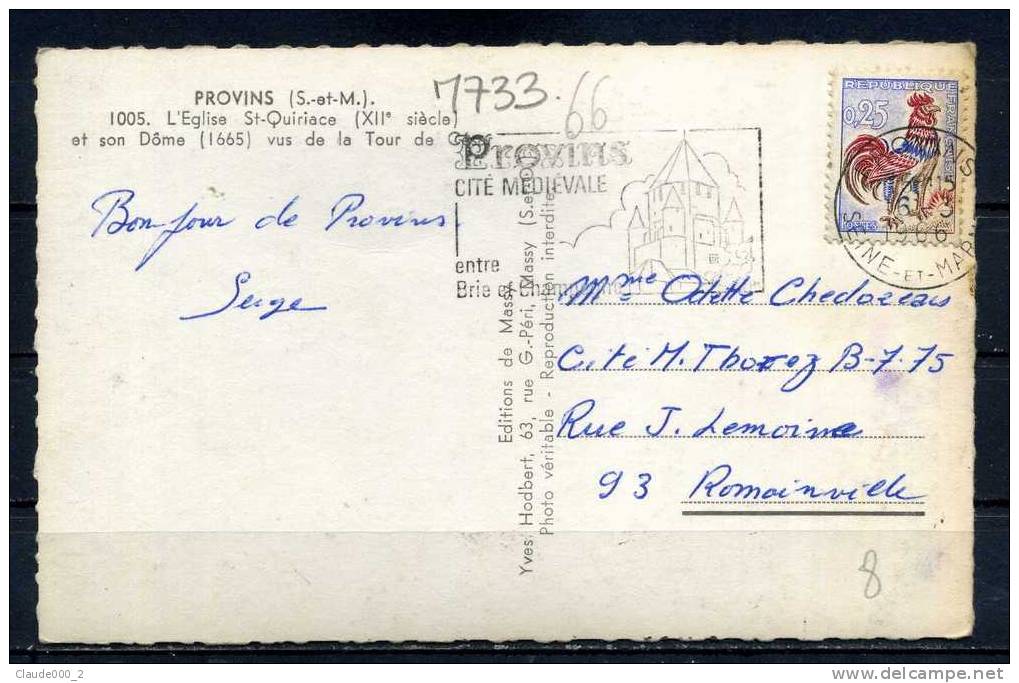 PROVINS (S.-et-M.).
1005. L'Eglise St-Quiriace (XIIe siècle)
et son Dôme (1665) vus de la Tour de
7733.
66
Provins
CITÉ MEDIÉVALE
entre
Brie et Champagne
RÉPUBLIQUE FRANÇAISE
0,25
POSTES
15
1966
SEINE-ET-MARNE
Bonjour de Provins
Serge
Editions de Massy
Yves Hodbert, 63, rue G.-Péri, Massy (S.-et-O.)
Photo véritable - Reproduction interdite
Mme Odette
Cité M. Thorez B-7.75
Rue J. Lemoine
93 Romainville
8
Claude000_2
www.delcampe.net